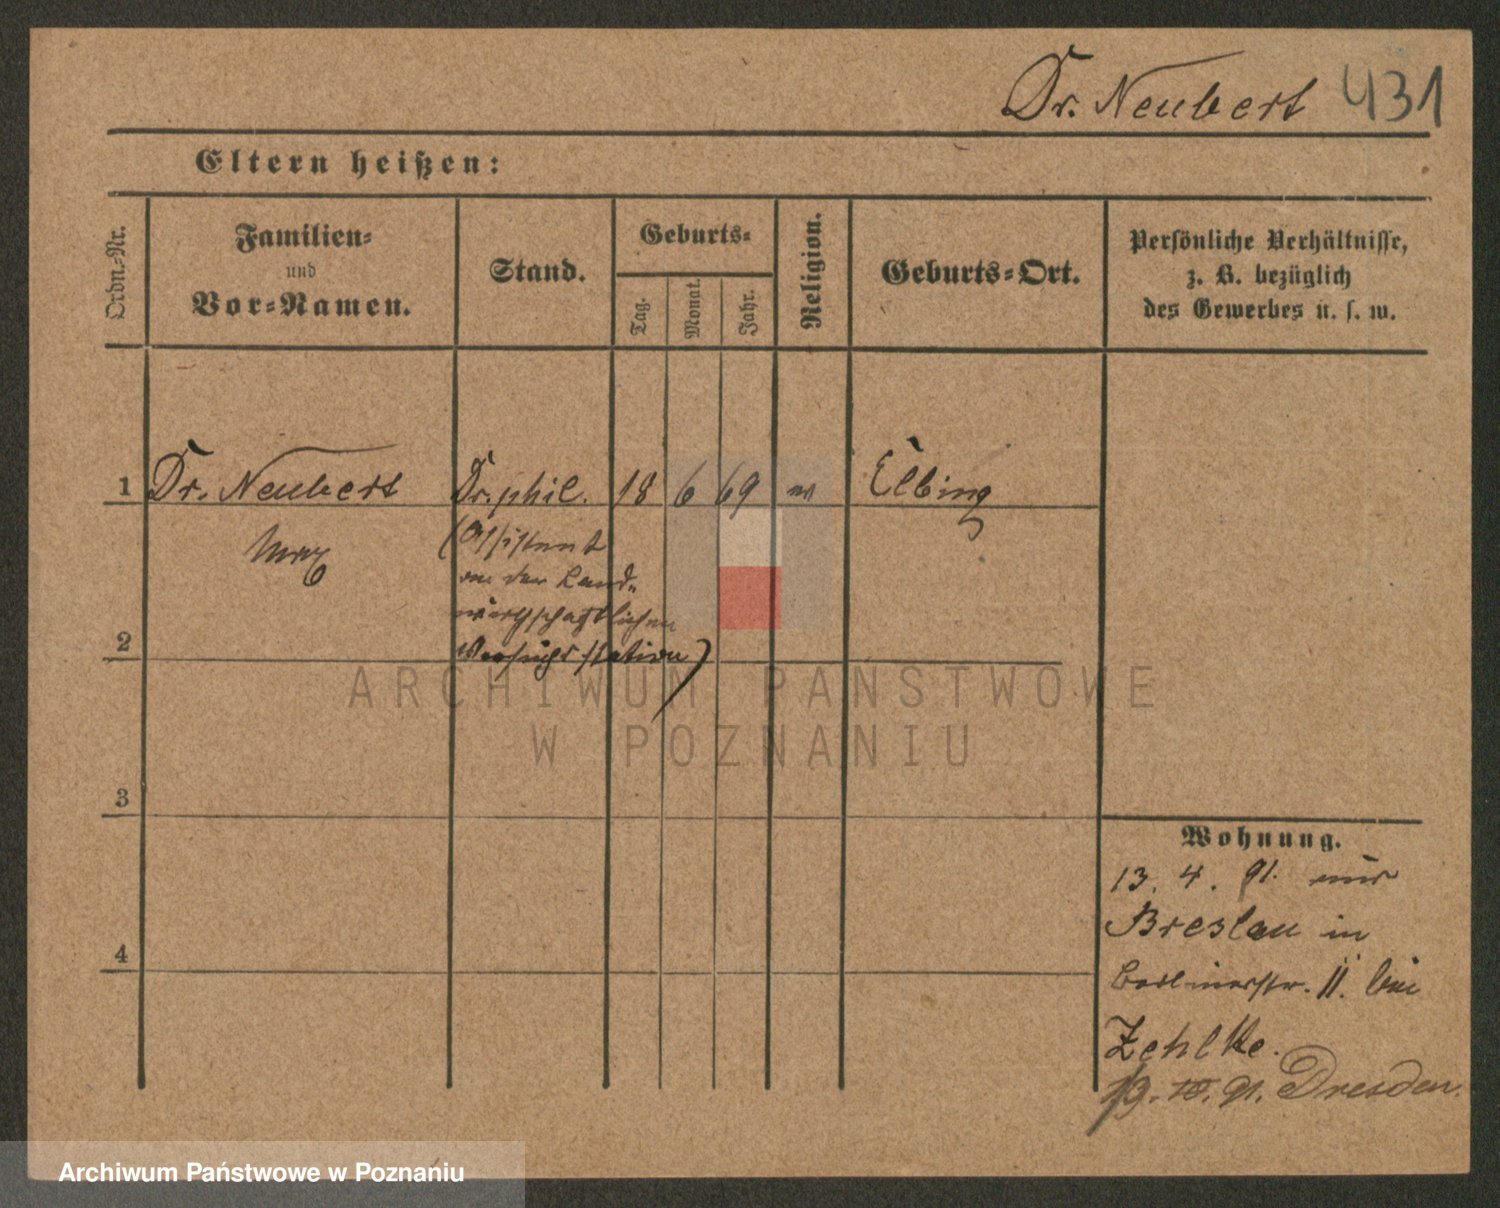 Dr. Neubert 431
Eltern heißen:
Ordn.-Nr.
Familien-
und
Vor-Namen.
Stand.
Geburts-
Tag.
Monat.
Jahr.
Religion.
Geburts-Ort.
Persönliche Verhältnisse,
z. B. bezüglich
des Gewerbes u. s. w.
1 Dr. Neubert Dr. phil. 18 6 69 Elbing
Max
(Assistent
an der Land-
wirthschaftlichen
Versuchsstation)
2
3
4
Wohnung.
13. 4. 91. aus
Breslau in
Berlinerstr. 11. bei
Zehlke.
Dresden.
ARCHIWUM PAŃSTWOWE
W POZNANIU
Archiwum Państwowe w Poznaniu